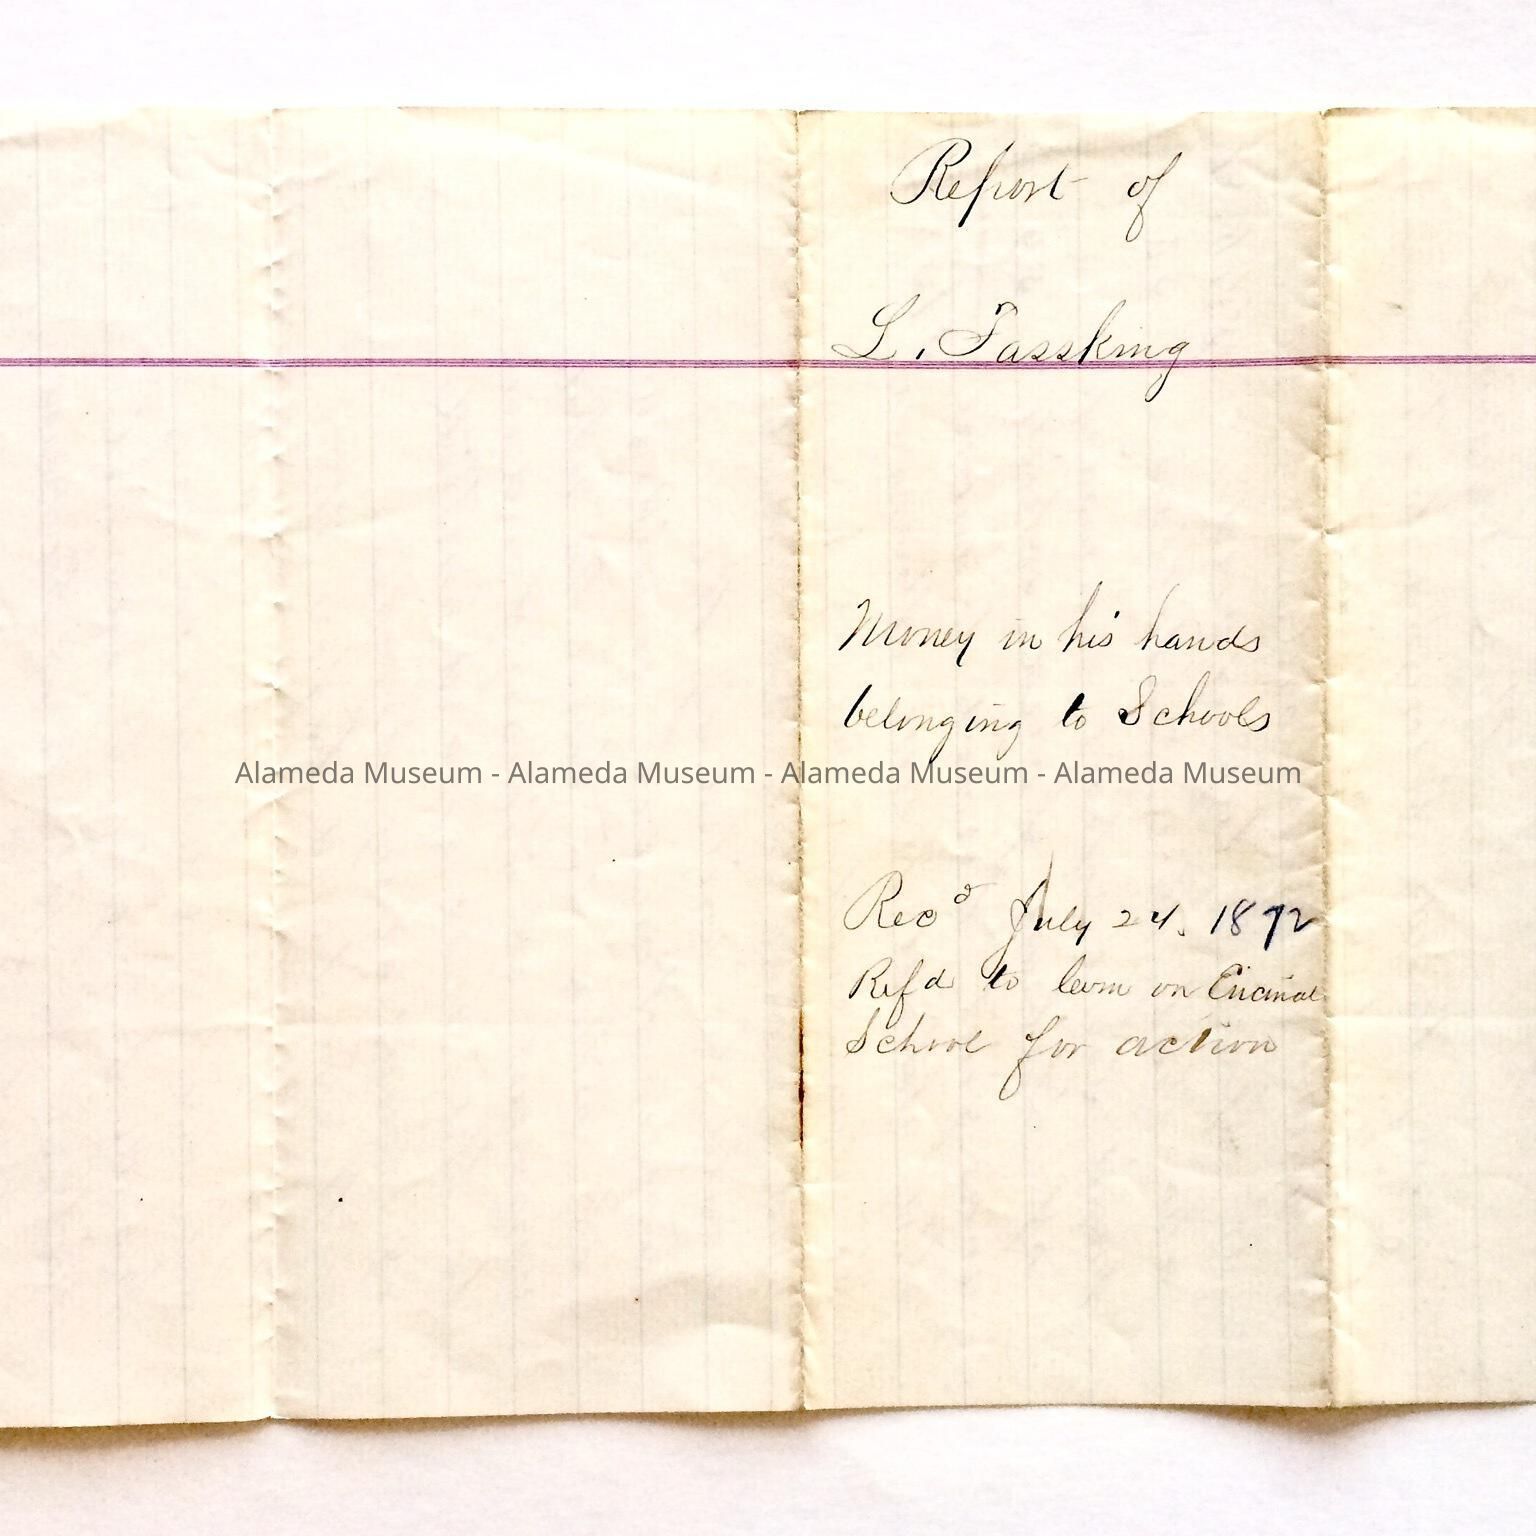 Report of
L. Fassking
Money in his hands
belonging to Schools
Alameda Museum - Alameda Museum - Alameda Museum - Alameda Museum
Recd July 24. 1872
Refd to Com on Encinal
School for action